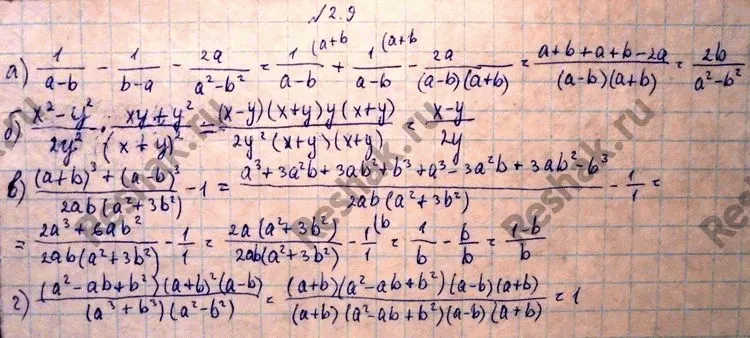 №2.9
а) 1/(a-b) - 1/(b-a) - 2a/(a²-b²) = 1/(a-b) (a+b + 1/(a-b) (a+b - 2a/((a-b)(a+b)) = (a+b+a+b-2a)/((a-b)(a+b)) = 2b/(a²-b²)
б) (x²-y²)/(2y²) · (xy+y²)/(x+y)² = ((x-y)(x+y)y(x+y))/(2y²(x+y)(x+y)) = (x-y)/(2y)
в) ((a+b)³+(a-b)³)/(2ab(a²+3b²)) - 1 = (a³+3a²b+3ab²+b³+a³-3a²b+3ab²-b³)/(2ab(a²+3b²)) - 1/1 =
= (2a³+6ab²)/(2ab(a²+3b²)) - 1/1 = (2a(a²+3b²))/(2ab(a²+3b²)) - 1/1 (b = 1/b - b/b = (1-b)/b
г) ((a²-ab+b²)(a+b)²(a-b))/((a³+b³)(a²-b²)) = ((a+b)(a²-ab+b²)(a-b)(a+b))/((a+b)(a²-ab+b²)(a-b)(a+b)) = 1
Reshak.ru
Reshak.ru
Reshak.ru